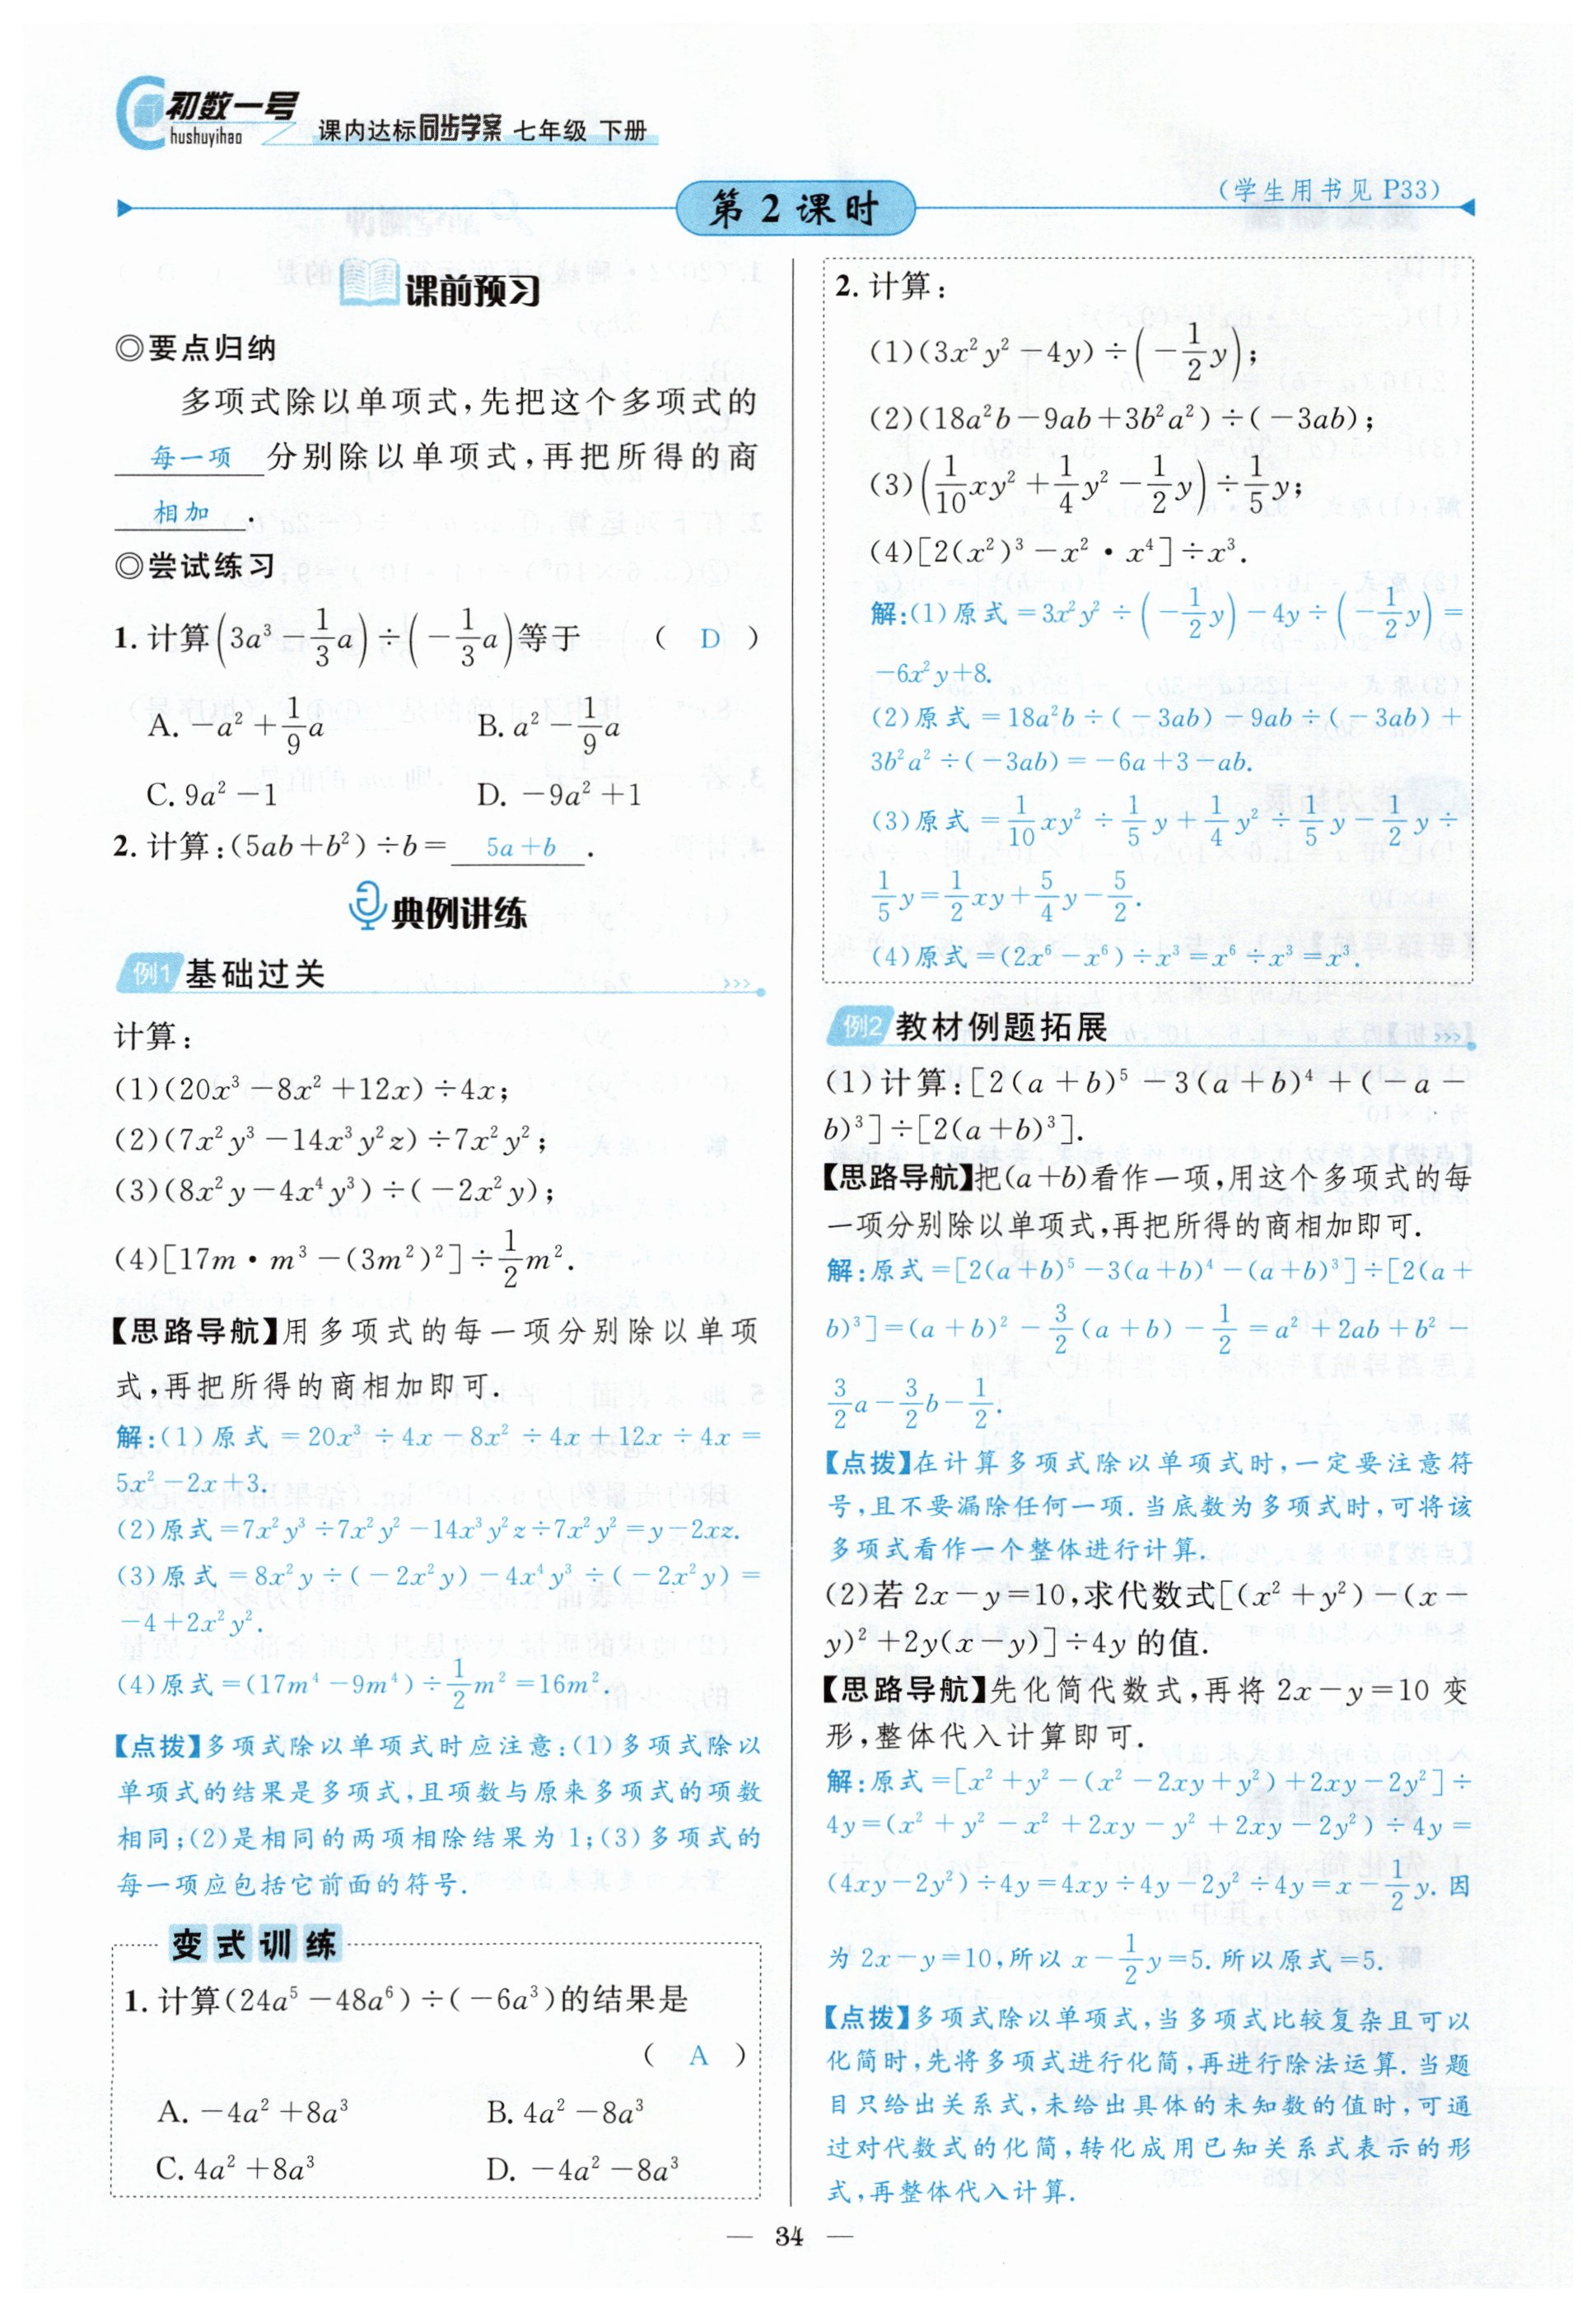 初数一号
hushuyihao
课内达标同步学案 七年级 下册
第2课时
(学生用书见 P33)
课前预习
◎要点归纳
多项式除以单项式,先把这个多项式的
每一项 分别除以单项式,再把所得的商
相加 .
◎尝试练习
1. 计算(3a³-1/3a)÷(-1/3a)等于 ( D )
A. -a²+1/9a B. a²-1/9a
C. 9a²-1 D. -9a²+1
2. 计算:(5ab+b²)÷b= 5a+b .
典例讲练
例1 基础过关
计算:
(1)(20x³-8x²+12x)÷4x;
(2)(7x²y³-14x³y²z)÷7x²y²;
(3)(8x²y-4x⁴y³)÷(-2x²y);
(4)[17m·m³-(3m²)²]÷1/2m².
【思路导航】用多项式的每一项分别除以单项
式,再把所得的商相加即可.
解:(1)原式=20x³÷4x-8x²÷4x+12x÷4x=
5x²-2x+3.
(2)原式=7x²y³÷7x²y²-14x³y²z÷7x²y²=y-2xz.
(3)原式=8x²y÷(-2x²y)-4x⁴y³÷(-2x²y)=
-4+2x²y².
(4)原式=(17m⁴-9m⁴)÷1/2m²=16m².
【点拨】多项式除以单项式时应注意:(1)多项式除以
单项式的结果是多项式,且项数与原来多项式的项数
相同;(2)是相同的两项相除结果为1;(3)多项式的
每一项应包括它前面的符号.
变式训练
1. 计算(24a⁵-48a⁶)÷(-6a³)的结果是
( A )
A. -4a²+8a³ B. 4a²-8a³
C. 4a²+8a³ D. -4a²-8a³
2. 计算:
(1)(3x²y²-4y)÷(-1/2y);
(2)(18a²b-9ab+3b²a²)÷(-3ab);
(3)(1/10xy²+1/4y²-1/2y)÷1/5y;
(4)[2(x²)³-x²·x⁴]÷x³.
解:(1)原式=3x²y²÷(-1/2y)-4y÷(-1/2y)=
-6x²y+8.
(2)原式=18a²b÷(-3ab)-9ab÷(-3ab)+
3b²a²÷(-3ab)=-6a+3-ab.
(3)原式=1/10xy²÷1/5y+1/4y²÷1/5y-1/2y÷
1/5y=1/2xy+5/4y-5/2.
(4)原式=(2x⁶-x⁶)÷x³=x⁶÷x³=x³.
例2 教材例题拓展
(1)计算:[2(a+b)⁵-3(a+b)⁴+(-a-
b)³]÷[2(a+b)³].
【思路导航】把(a+b)看作一项,用这个多项式的每
一项分别除以单项式,再把所得的商相加即可.
解:原式=[2(a+b)⁵-3(a+b)⁴-(a+b)³]÷[2(a+
b)³]=(a+b)²-3/2(a+b)-1/2=a²+2ab+b²-
3/2a-3/2b-1/2.
【点拨】在计算多项式除以单项式时,一定要注意符
号,且不要漏除任何一项.当底数为多项式时,可将该
多项式看作一个整体进行计算.
(2)若2x-y=10,求代数式[(x²+y²)-(x-
y)²+2y(x-y)]÷4y的值.
【思路导航】先化简代数式,再将2x-y=10变
形,整体代入计算即可.
解:原式=[x²+y²-(x²-2xy+y²)+2xy-2y²]÷
4y=(x²+y²-x²+2xy-y²+2xy-2y²)÷4y=
(4xy-2y²)÷4y=4xy÷4y-2y²÷4y=x-1/2y.因
为2x-y=10,所以x-1/2y=5.所以原式=5.
【点拨】多项式除以单项式,当多项式比较复杂且可以
化简时,先将多项式进行化简,再进行除法运算.当题
目只给出关系式,未给出具体的未知数的值时,可通
过对代数式的化简,转化成用已知关系式表示的形
式,再整体代入计算.
— 34 —